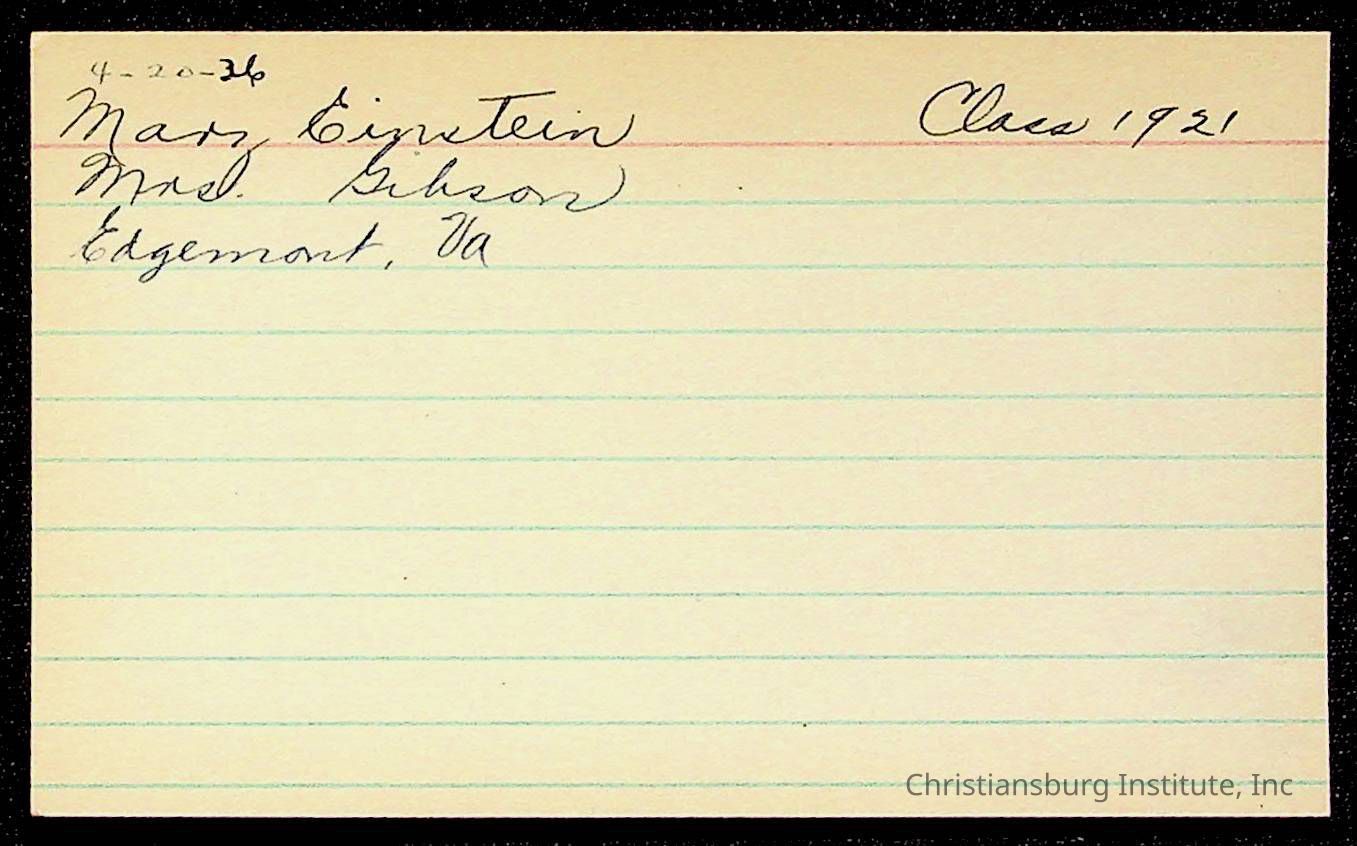 4-20-36
Mary Einstein Class 1921
Mrs. Gibson
Edgemont, Va
Christiansburg Institute, Inc